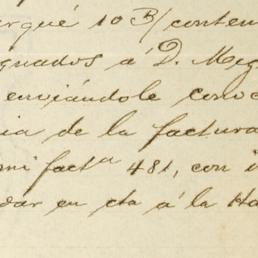 arqué 10 B/ conten
gnados á D. Mig
enviándole conoc
ia de la factura
mi factª 481, con i
dar en cta á la Ha